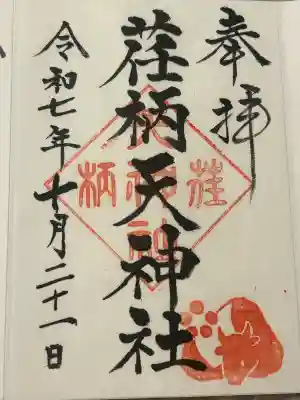 奉拝
荏柄天神社
令和七年十月二十一日
荏
天神社
柄